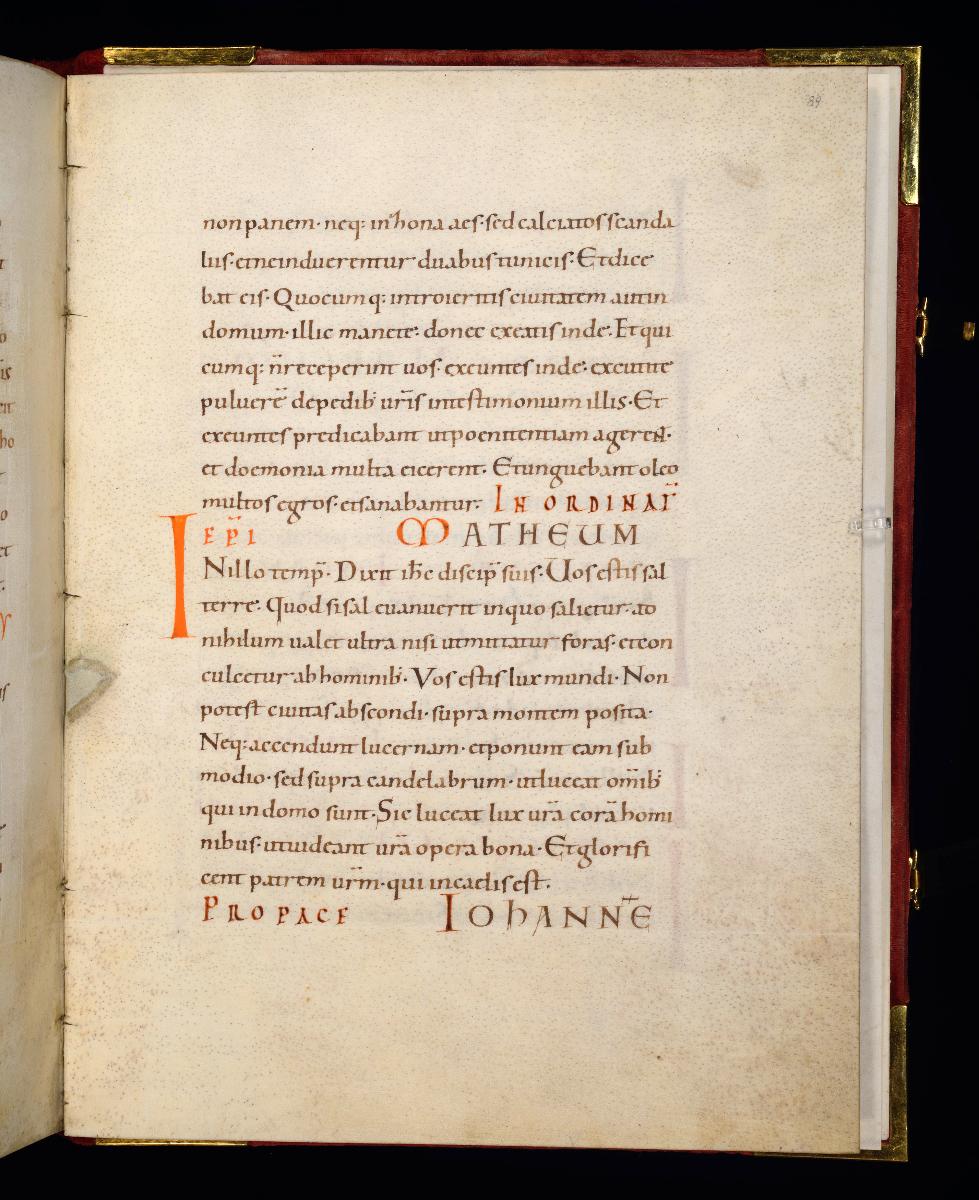 89
non panem· neq: in zona aes· sed calciatos scanda
liis· et ne induerentur duabus tunicis· Et dice
bat eis· Quocumq: introieritis ciuitatem aut in
domum· illic manete· donec exeatis inde· Et qui
cumq: n̄ receperint uos· exeuntes inde· excutite
puluerē de pedib; ur̄is in testimonium illis· Et
exeuntes predicabant ut poenitentiam agerent·
et doemonia multa eicerent· Et unguebant oleo
multos egros· et sanabantur· IN ORDINAT̄
EP̄I MATHEUM
INillo temp̄· Dixit ih̄c discip̄ suis· Uos estis sal
terre· Quod si sal euanuerit in quo salietur· ad
nihilum ualet ultra nisi ut mittatur foras· et con
culcetur ab hominib;· Vos estis lux mundi· Non
potest ciuitas abscondi· supra montem posita·
Neq: accendunt lucernam· et ponunt eam sub
modio· sed supra candelabrum· ut luceat om̄ib;
qui in domo sunt· Sic luceat lux ur̄a corā homi
nibus· ut uideant ur̄a opera bona· Et glorifi
cent patrem ur̄m· qui in caelis est·
PRO PACE IOHANNE̅